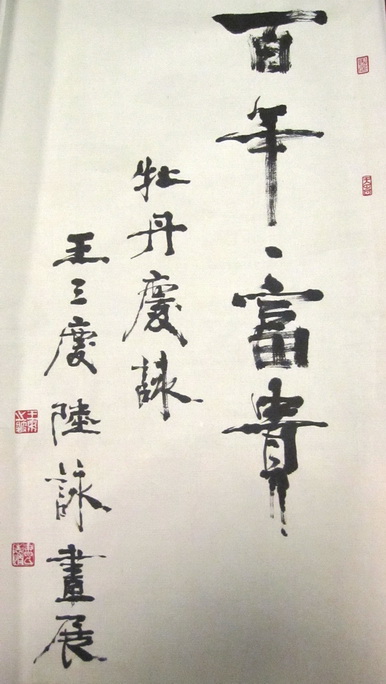 百年、富貴
牡丹慶詠
王三慶陸詠畫展